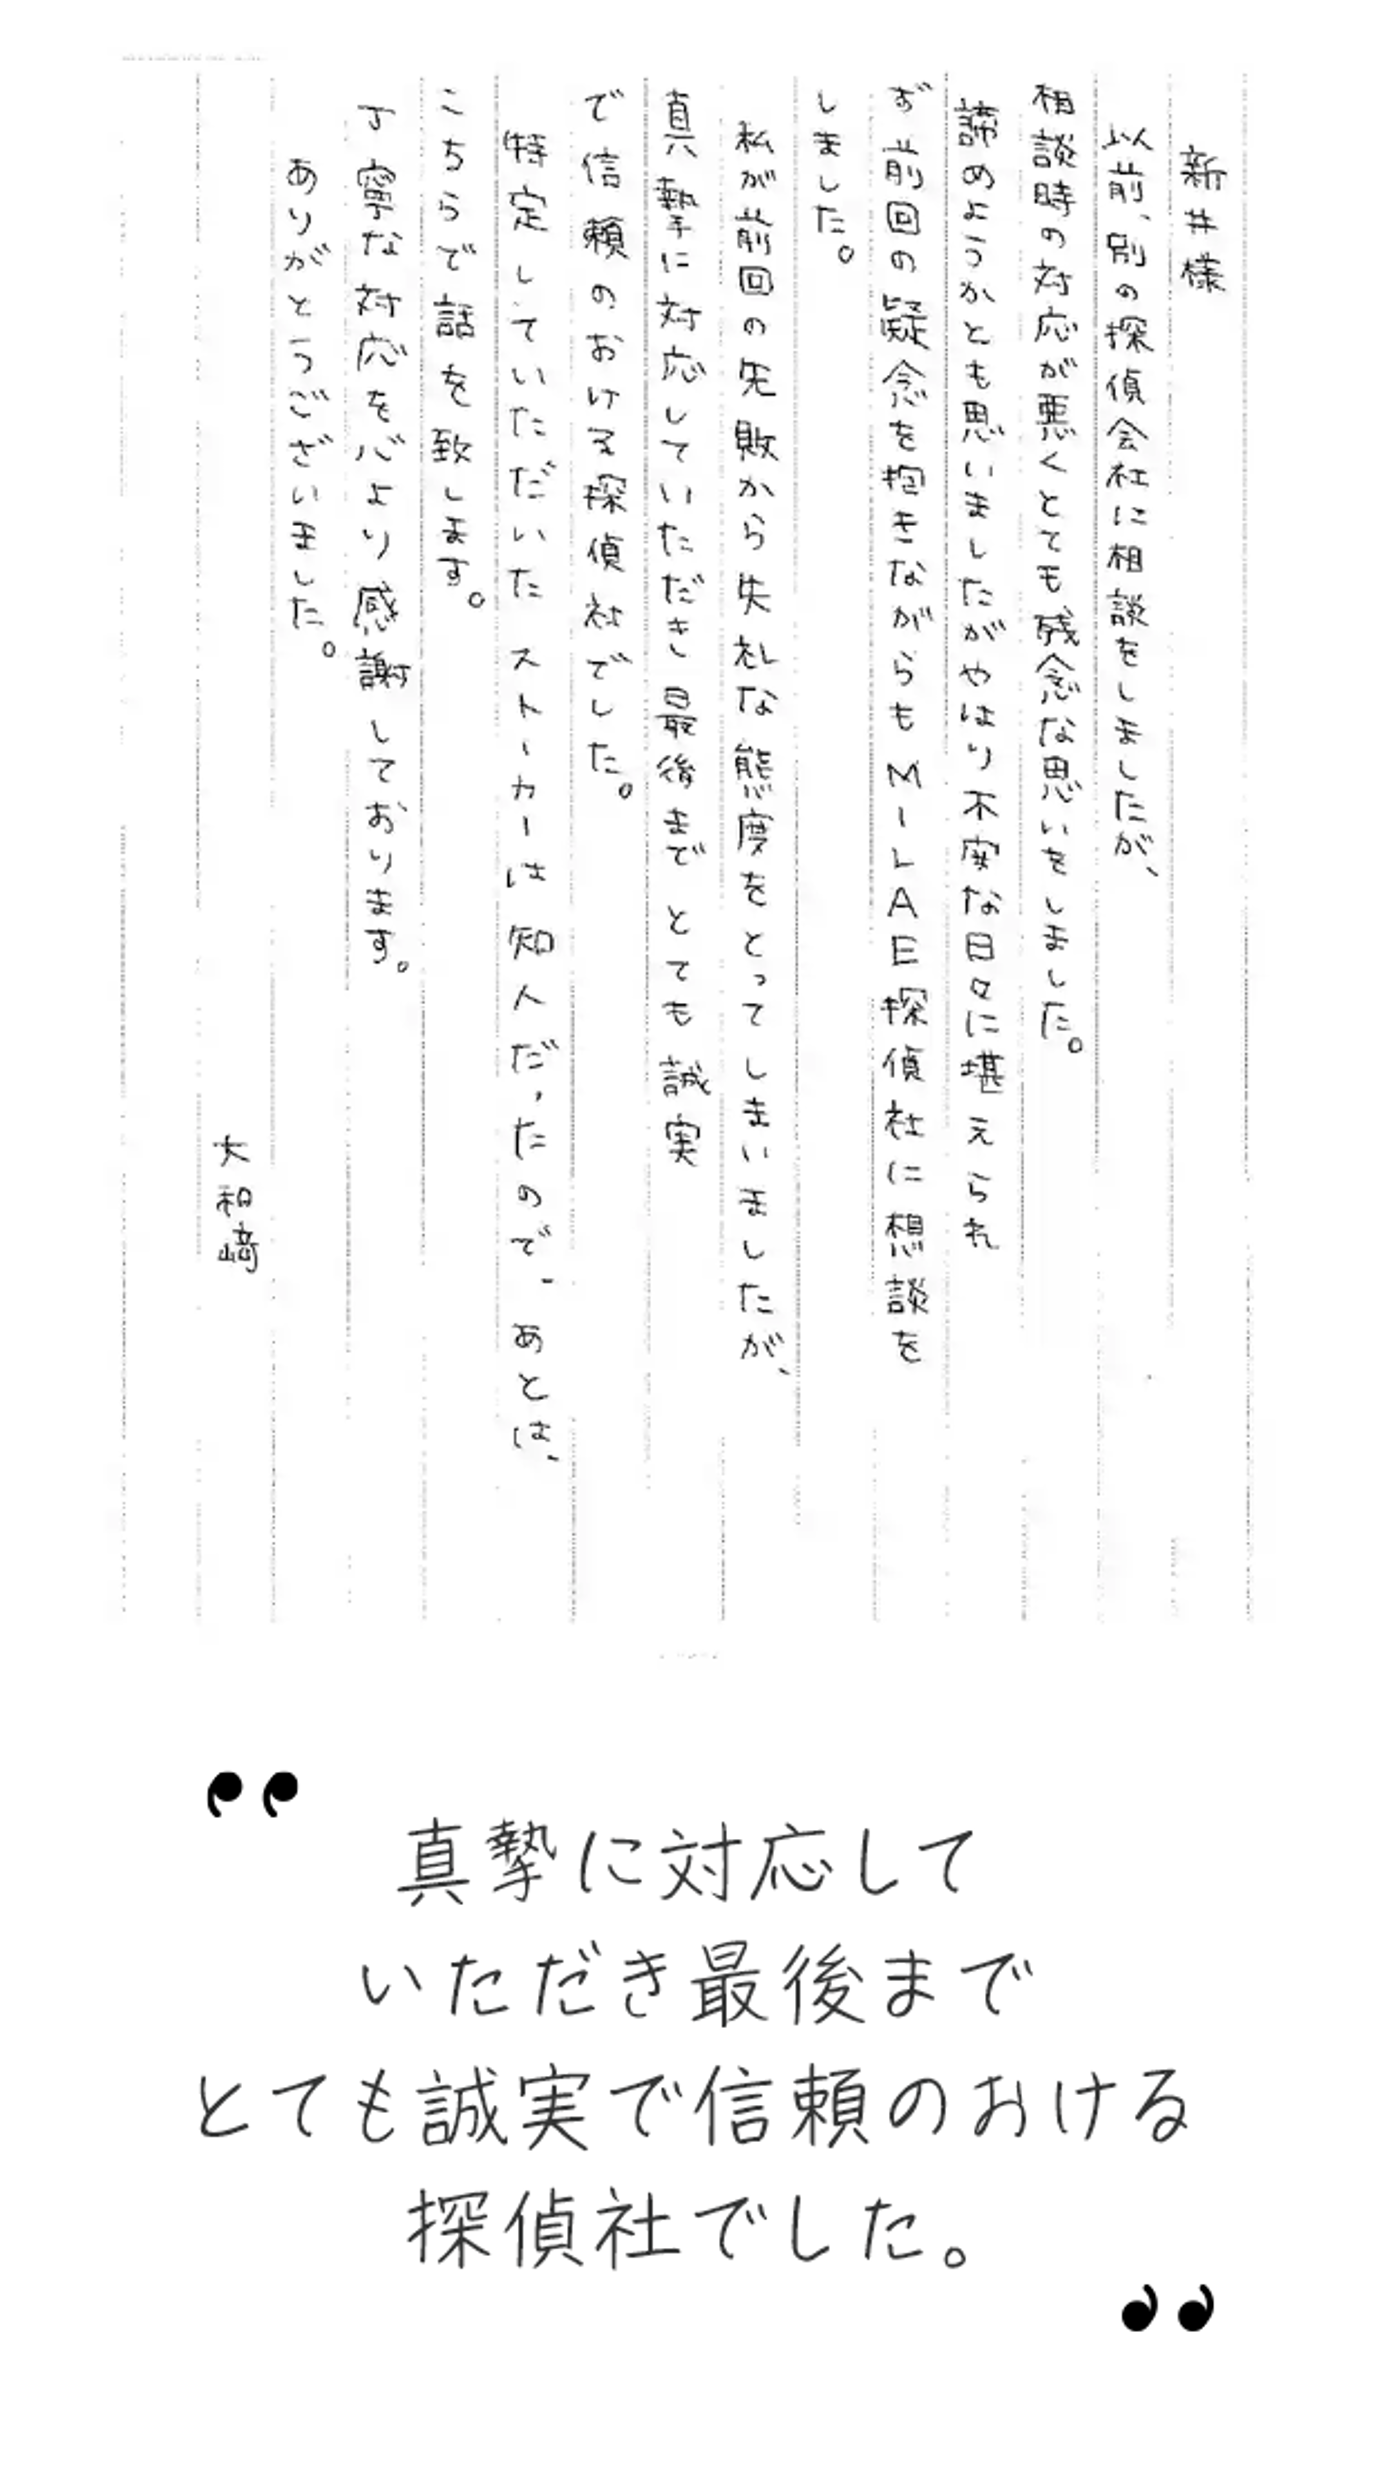 新井様
以前、別の探偵会社に相談をしましたが、
相談時の対応が悪くとても残念な思いをしました。
諦めようかとも思いましたがやはり不安な日々に堪えられ
ず前回の疑念を抱きながらもMーLAE探偵社に想談を
しました。
私が前回の失敗から失礼な態度をとってしまいましたが、
真摯に対応していただき最後までとても誠実
で信頼のおける探偵社でした。
特定していただいたストーカーは知人だったので、あとは、
こちらで話を致します。
丁寧な対応を心より感謝しております。
ありがとうございました。
大和﨑
“
真摯に対応して
いただき最後まで
とても誠実で信頼のおける
探偵社でした。
”